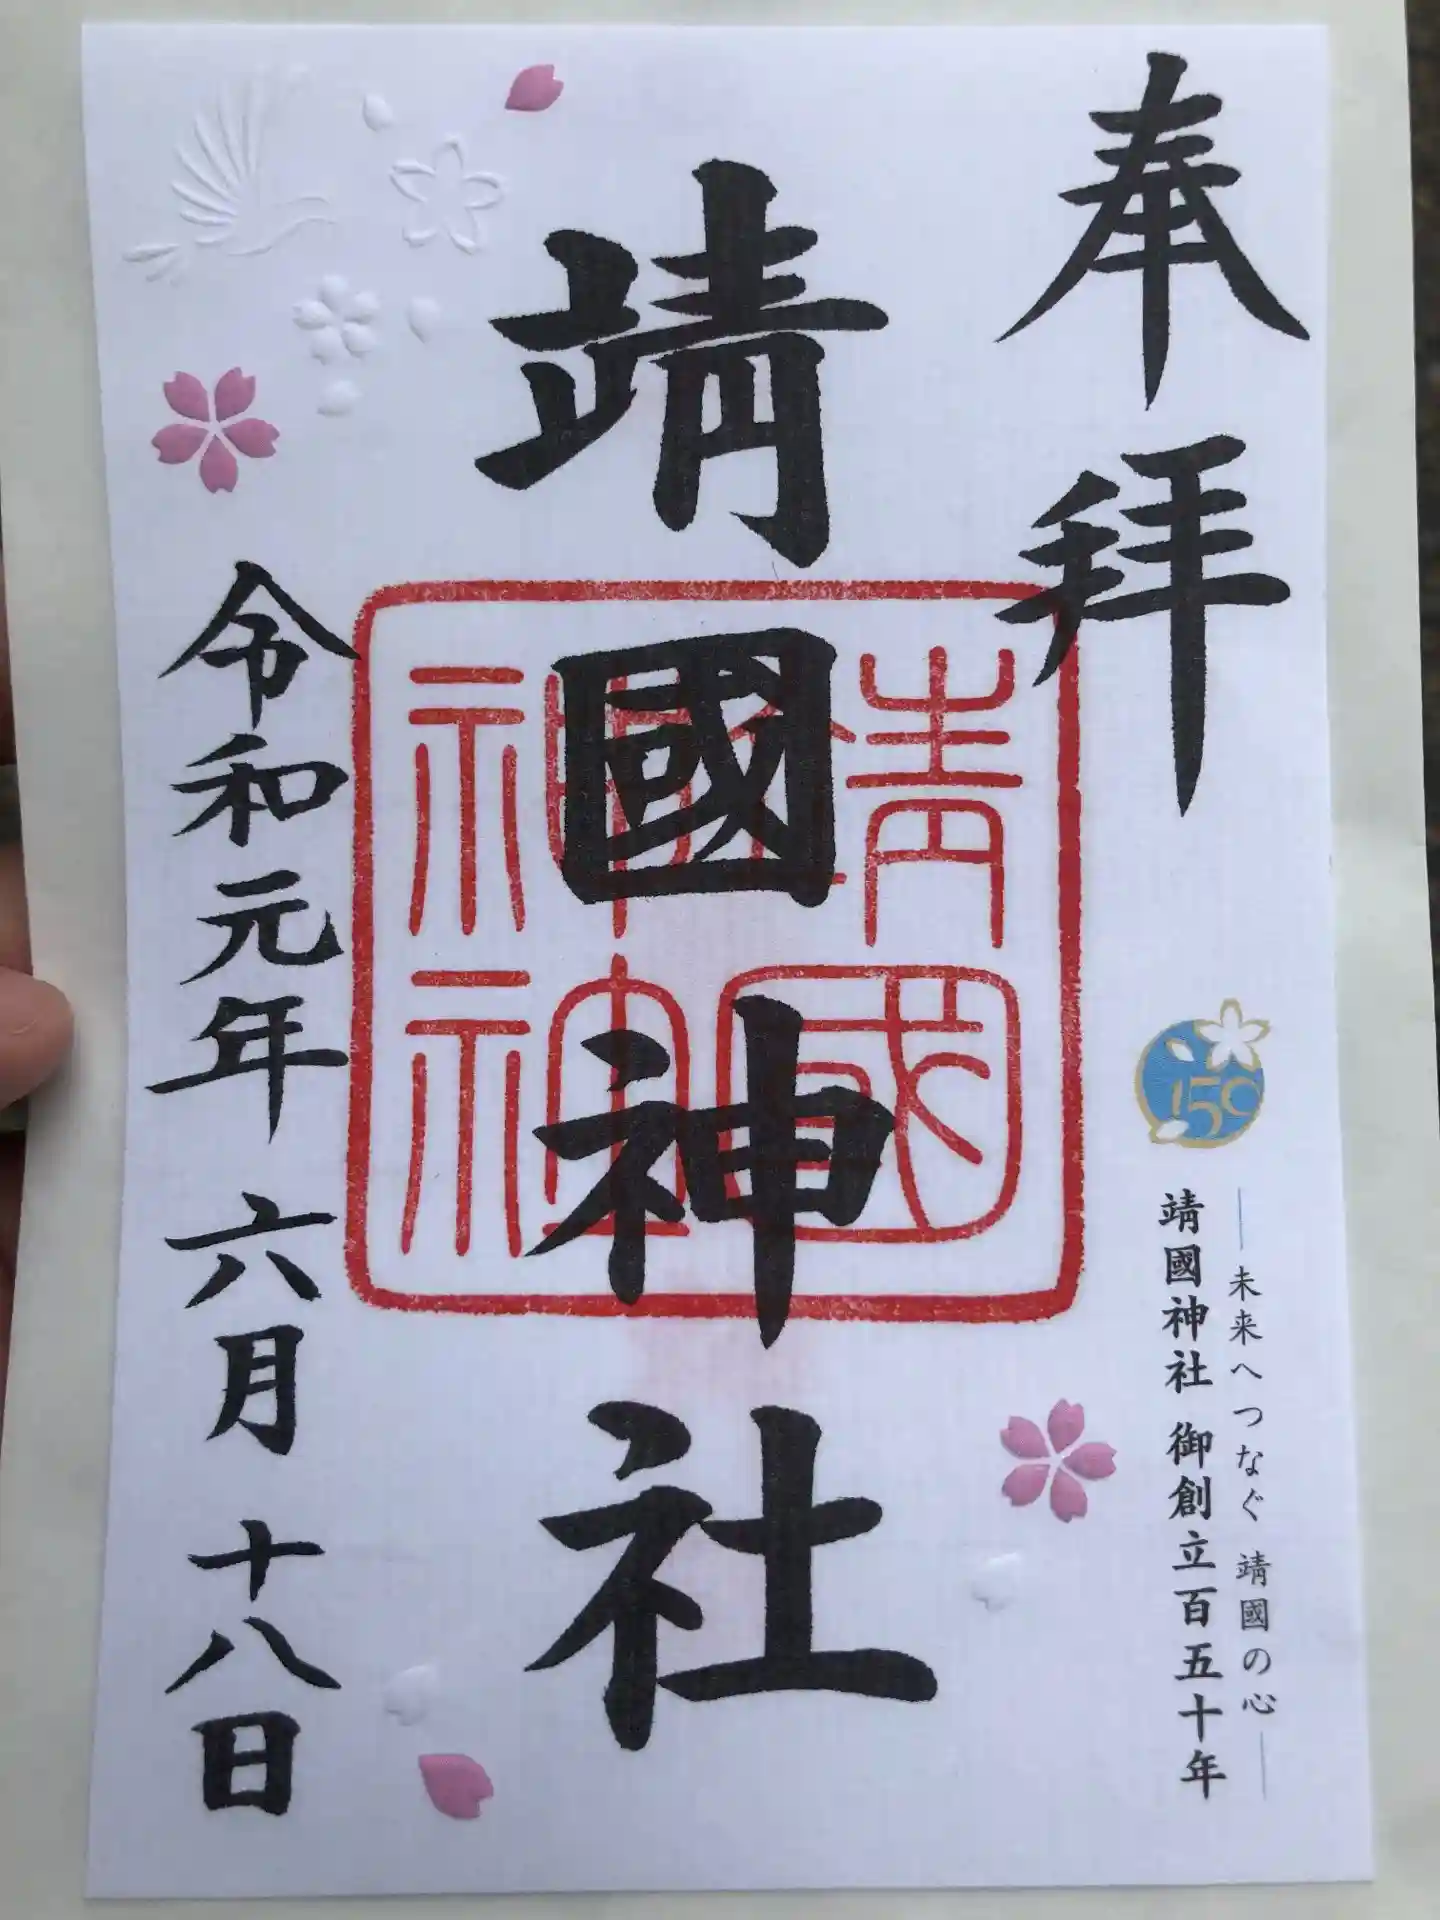 奉拝
150
―未来へつなぐ 靖國の心―
靖國神社 御創立百五十年
靖國神社
靖國神社
令和元年 六月 十八日